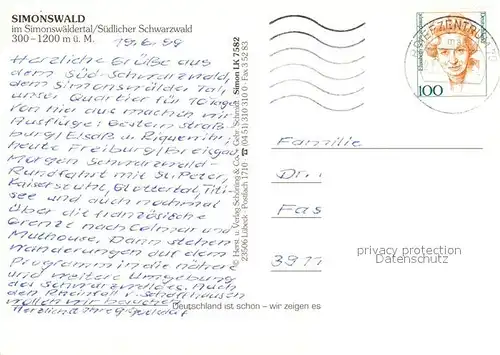 SIMONSWALD
im Simonswäldertal/Südlicher Schwarzwald
300–1200 m ü. M.
19.6.99
Herzliche Grüße aus
dem Süd-Schwarzwald,
dem Simonswälder Tal,
unser Quartier für 10 Tage
von hier aus machen wir
Ausflüge: Gestern Straß-
burg/Elsaß u. Riquewihr,
heute Freiburg/Breisgau,
Morgen Schwarzwald-
Rundfahrt mit St. Peter,
Kaiserstuhl, Glottertal, Titi-
see und auch nochmal
über die französische
Grenze nach Colmar und
Mulhouse. Dann stehen
Wanderungen auf dem
Programm in die nähere
und weitere Umgebung
des Schwarzwaldes. Auch
den Rheinfall v. Schaffhausen
wollen wir besuchen
Herzlichst Ihre
© Horst u. Verlag Schöning & Co. + Gebr. Schmidt Simon LK 7582
23506 Lübeck · Postfach 1710 · ☎ (04 51) 310 310 0 · Fax 3 52 83
Deutschland ist schön – wir zeigen es
BRIEFZENTRUM
100
Familie
Dr.
Fas
privacy protection
Datenschutz